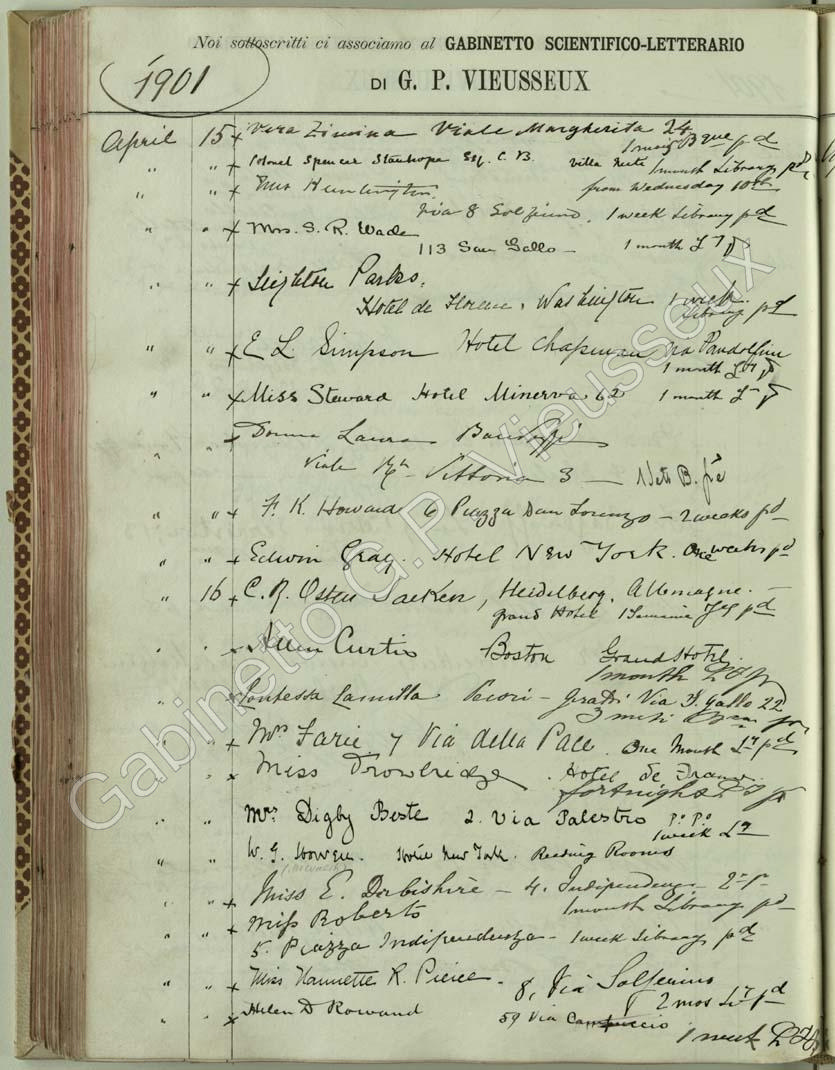 Noi sottoscritti ci associamo al GABINETTO SCIENTIFICO-LETTERARIO
1901
DI G. P. VIEUSSEUX
April 15 x Vera Zimina Viale Margherita 24
1 mois Bque pd
" " x Colonel Spencer Stanhope Esq. C. B. Villa 1 month Library pd
" " x Huntington from Wednesday 10th
Via 8 Solferino. 1 week Library pd
" " x Mrs. S. R. Wade
113 San Gallo — 1 month
" " x Leighton Parks,
Hotel de Florence, Washington 1 week.
Library pd
" " x E L Simpson Hotel Chapman Via Pandolfini
1 month
" " x Miss Steward Hotel Minerva 62 1 month
" " x Donna Laura
Viale Vittoria 3 — B.
" " x F. K. Howard 6 Piazza San Lorenzo — 2 weeks pd
" " x Edwin Gray. Hotel New York. One weeks pd
" 16 x C. R. Osten Sacken, Heidelberg. Allemagne. —
Grand Hotel 1 Semaine pd
" " x Allen Curtis Boston Grand Hotel.
1 month
" " x Contessa Camilla Via S. Gallo 22
3 mesi
" " x Mrs Farie 7 Via della Pace. One Month Ly pd
" " x Miss Trowbridge. Hotel de France.
fortnight
" " Mrs Digby Beste 2. Via Palestro Po. Po.
1 week Ly
" " W. G. Howell. Hotel New York. Reading Rooms
" " x Miss E. Derbishire — 4. Indipendenza
1 month Library pd
" " x Miss Roberts
5. Piazza Indipendenza — 1 week Library pd
" " x Miss Nannette R. Pierce — 8, Via Solferino
2 mos Ly pd
" " x Helen D Rowand 59 Via
1 week
Gabinetto G.P. Vieusseux